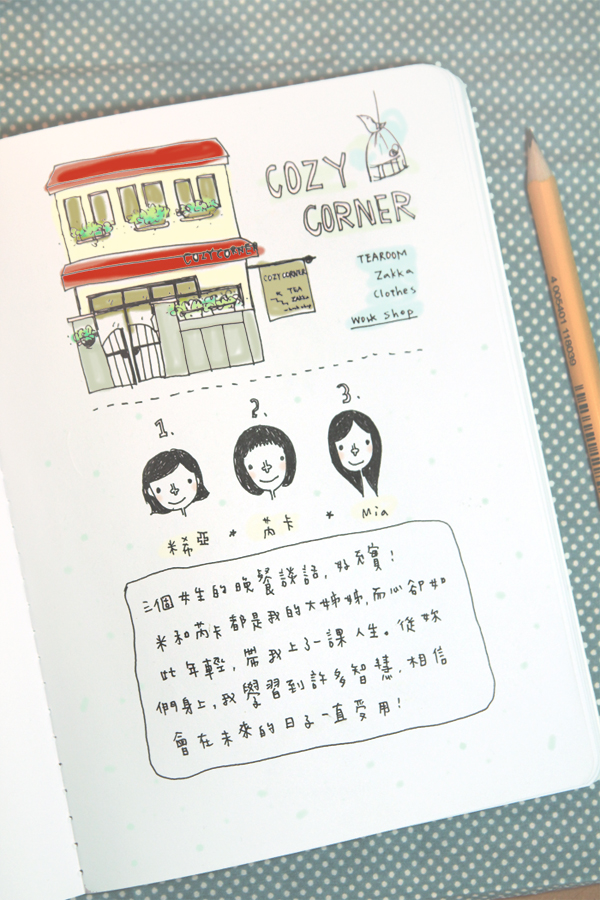 COZY
CORNER
COZY CORNER
COZY CORNER
TEA
ZAKKA
workshop
TEAROOM
Zakka
Clothes
Work Shop
1.
2.
3.
米希亞 * 芮卡 * Mia
三個女生的晚餐談話，好充實！
米和芮卡都是我的大姊姊，而心卻如
此年輕，帶我上了一課人生。從妳
們身上，我學習到許多智慧，相信
會在未來的日子一直受用！
4 005401 118030